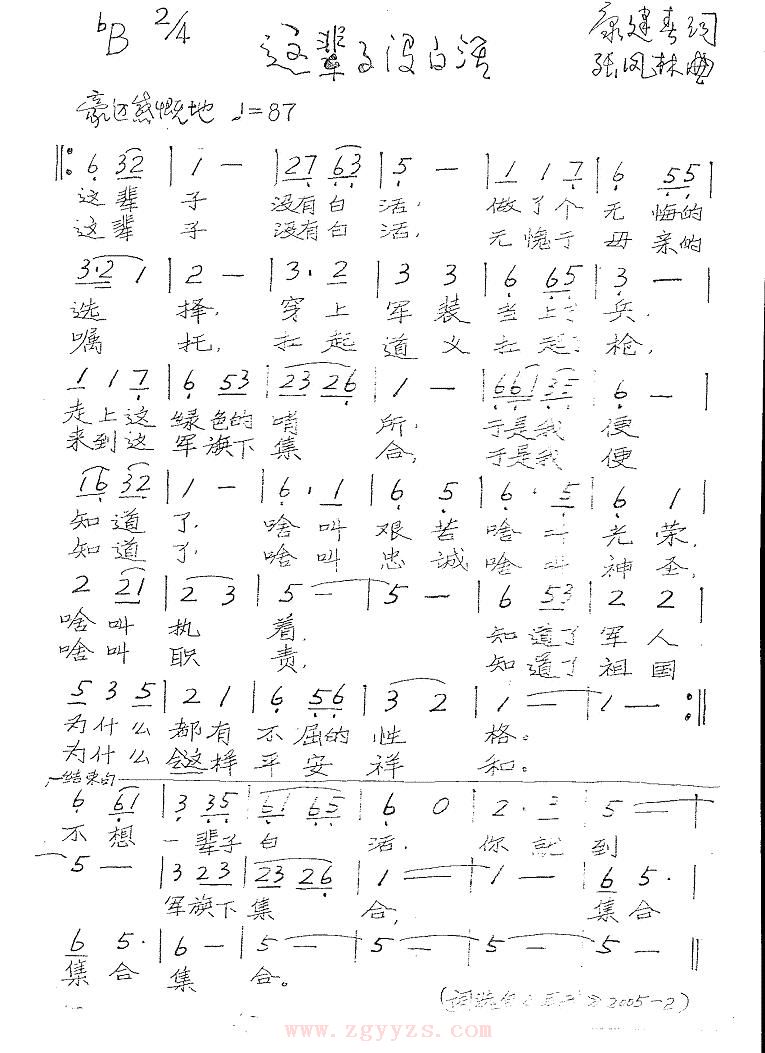 ♭B 2/4
这辈子没白活
康建春词
张凤林曲
豪迈慷慨地 ♩=87
‖: 6 32 | 1 — | 27 63 | 5 — | 1 1 7 | 6 55 |
这辈 子 没有白 活, 做了个 无 悔的
这辈 子 没有白 活, 无愧于 母 亲的
3·2 1 | 2 — | 3· 2 | 3 3 | 6 65 | 3 — |
选 择, 穿上 军装 当上 兵,
嘱 托, 扛起 道义 扛起 枪,
1 1 7 | 6 53 | 23 26 | 1 — | 661 35 | 6 — |
走上这 绿色的 哨 所, 于是我 便
来到这 军旗下 集 合, 于是我 便
16 32 | 1 — | 6· 1 | 6 5 | 6· 5 | 6 1 |
知道 了, 啥叫 艰苦 啥叫 光荣,
知道 了, 啥叫 忠诚 啥叫 神圣,
2 21 | 2 3 | 5 — | 5 — | 6 53 | 2 2 |
啥叫 执 着, 知道了 军人
啥叫 职 责, 知道了 祖国
5 3 5 | 2 1 | 6 56 | 3 2 | 1 — | 1 — :‖
为什么 都有 不屈的 性 格。
为什么 会这样 平安 祥 和。
结束句
6 61 | 3 35 | 61 65 | 6 0 | 2· 3 | 5 — |
不想 一辈子 白 活, 你就 到
5 — | 3 23 | 23 26 | 1 — | 1 — | 6 5· |
军旗下 集 合, 集合
6 5· | 6 — | 5 — | 5 — | 5 — | 5 — ‖
集合 集 合。
2005-2)
www.zgyyzs.com